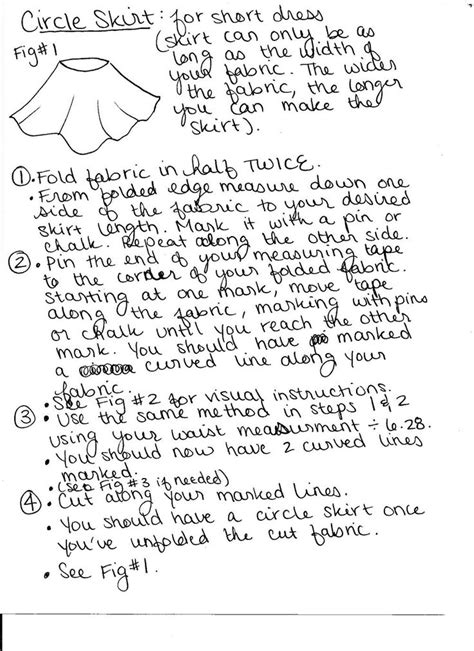 Circle Skirt: for short dress
Fig#1
(skirt can only be as
long as the width of
your fabric. The wider
the fabric, the longer
you can make the
skirt).
①. Fold fabric in half TWICE.
• From folded edge measure down one
side of the fabric to your desired
skirt length. Mark it with a pin or
chalk. Repeat along the other side.
②. • Pin the end of your measuring tape
to the corder of your folded fabric.
starting at one mark, move tape
along the fabric, marking with pins
or chalk until you reach the other
mark. You should have marked
a curved line along your
fabric.
• See Fig #2 for visual instructions.
③ • Use the same method in steps 1 & 2
using your waist measurment ÷ 6.28.
• You should now have 2 curved lines
marked.
• (see Fig #3 if needed)
④. • Cut along your marked lines.
• You should have a circle skirt once
you've unfolded the cut fabric.
• See Fig#1.